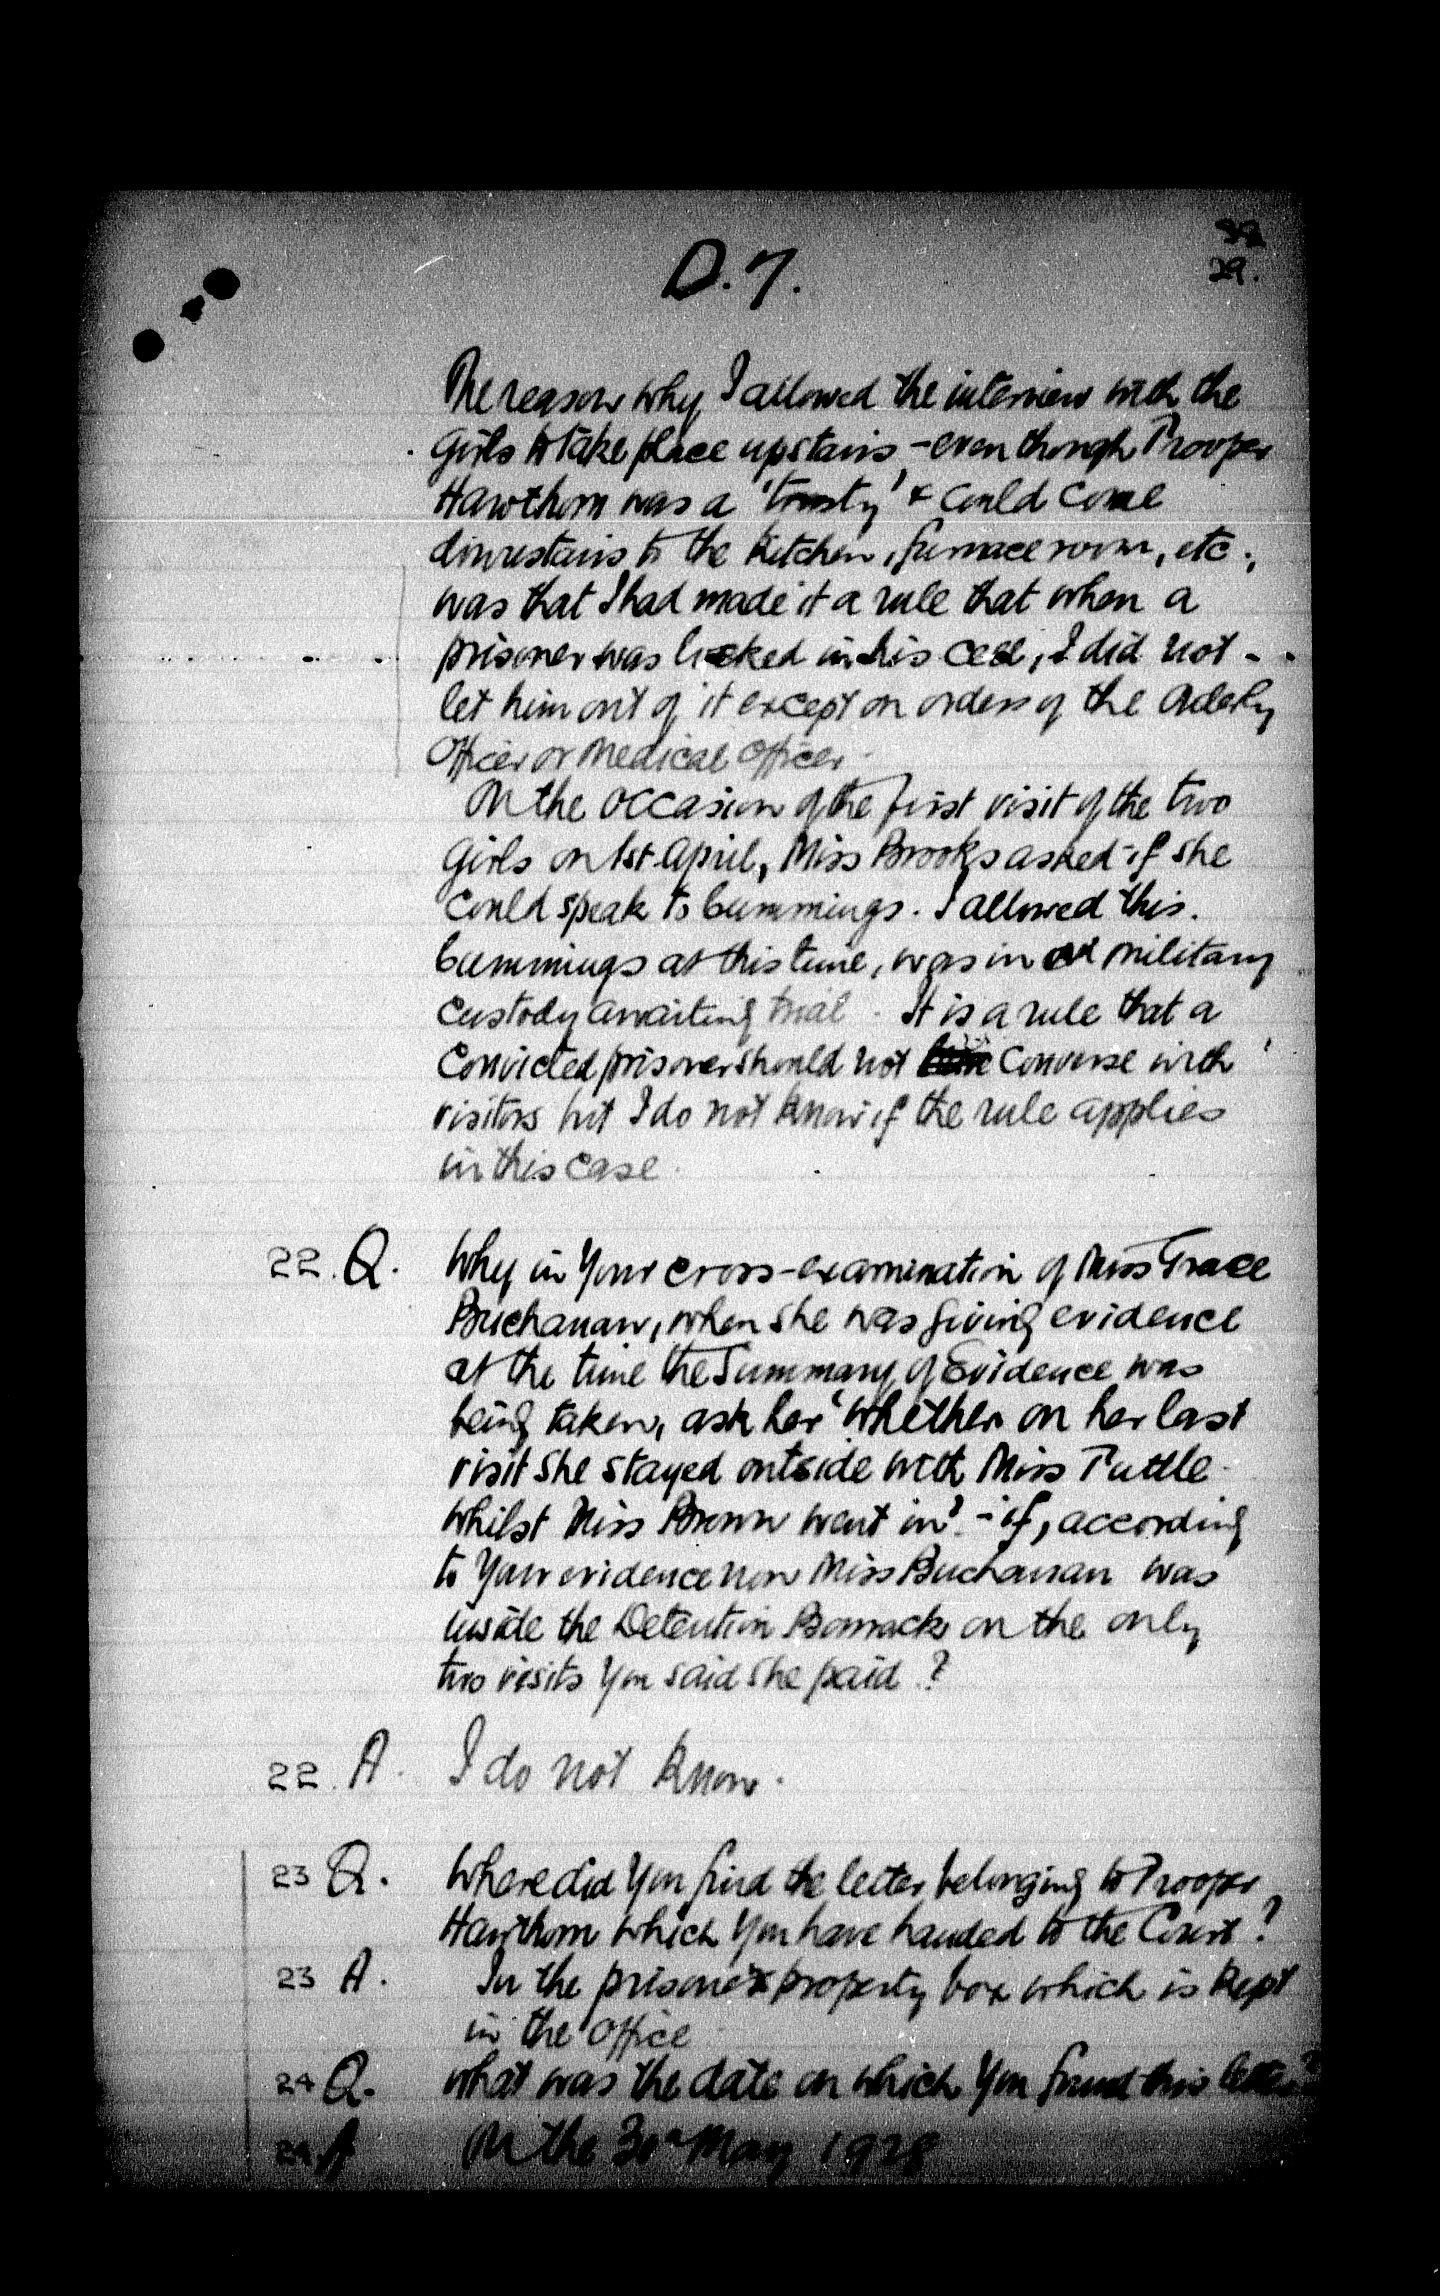 D.7.
29.
The reason why I allowed the interview with the
girls to take place upstairs - even though Trooper
Hawthorn was a 'trusty' & could come
downstairs to the kitchen, furnace room, etc.,
was that I had made it a rule that when a
prisoner was locked in his cell, I did not -
let him out of it except on orders of the Orderly
Officer or Medical Officer.
On the occasion of the first visit of the two
girls on 1st April, Miss Brooks asked if she
could speak to Cummings. I allowed this.
Cummings at this time, was in military
custody awaiting trial. It is a rule that a
convicted prisoner should not converse with
visitors but I do not know if the rule applies
in this case.
22. Q. Why in your cross-examination of Miss Grace
Buchanan, when she was giving evidence
at the time the Summary of Evidence was
being taken, ask her 'whether on her last
visit she stayed outside with Miss Tuttle
whilst Miss Brown went in?' - if, according
to your evidence now Miss Buchanan was
inside the Detention Barracks on the only
two visits you said she paid?
22. A. I do not know.
23 Q. Where did you find the letter belonging to Trooper
Hawthorn which you have handed to the Court?
23 A. In the prisoners property box which is kept
in the office
24 Q. What was the date on which you found this letter?
24 A On the May 1928